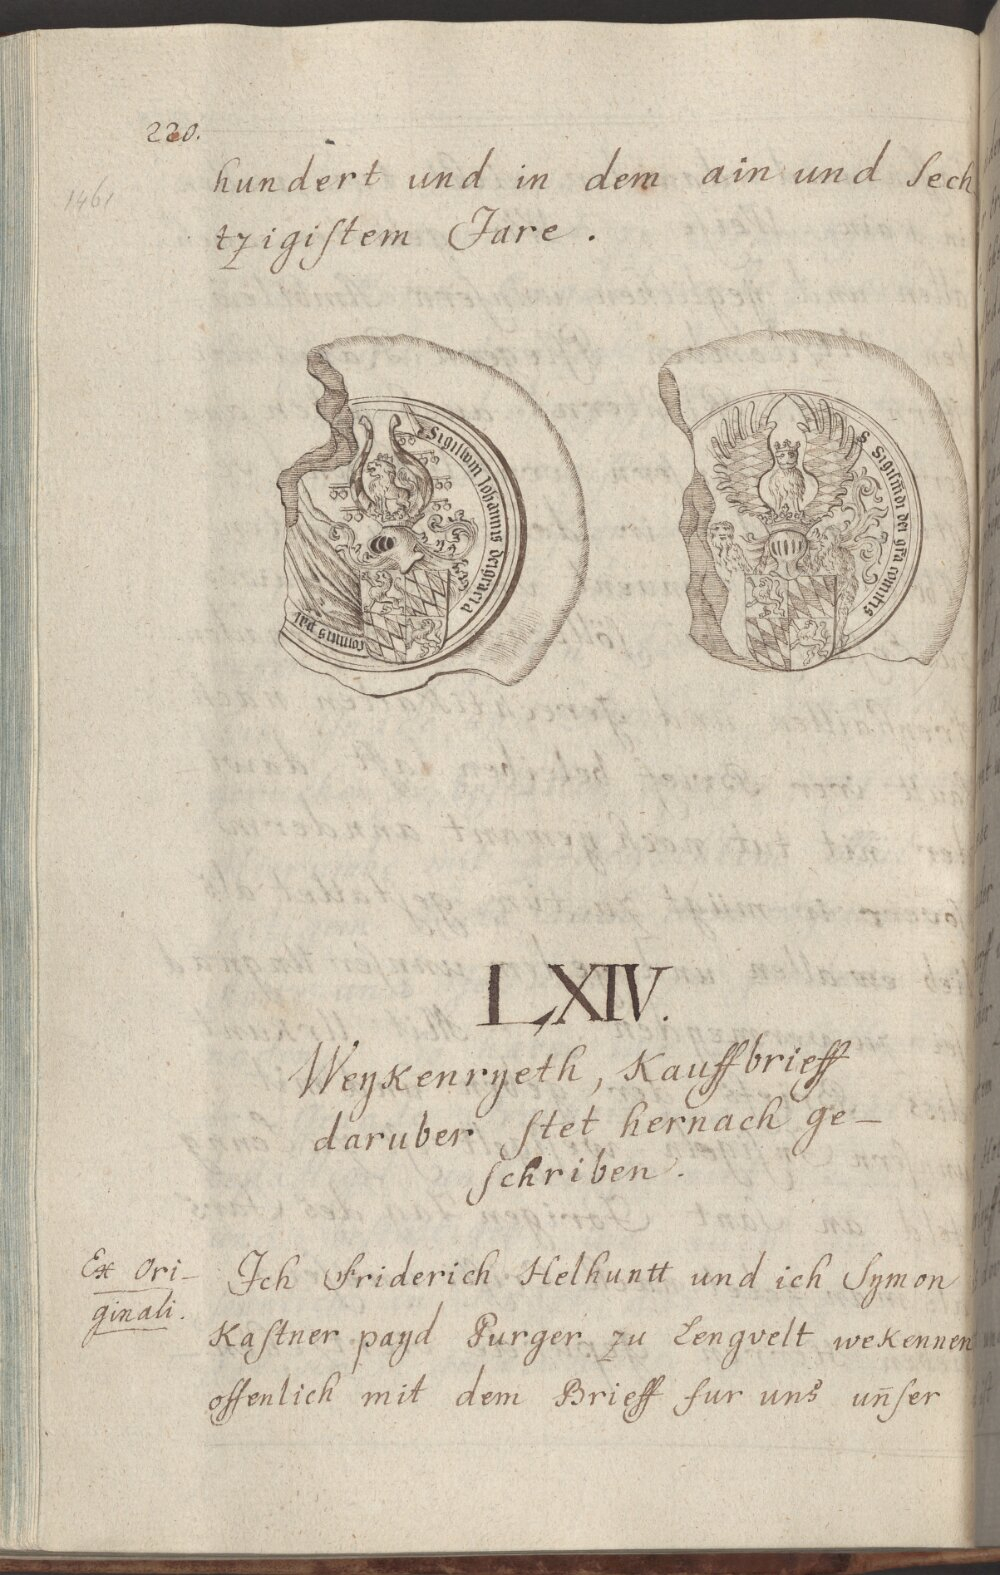 220.
1461
hundert und in dem ain und sech
tzigistem Jare.
Sigillum Johannis deigracia
comitis pal
S Sigismdi dei gra comitis
LXIV.
Weykenryeth, Kauffbrieff
daruber stet hernach ge-
schriben.
Ex Ori-
ginali.
Ich Friderich Helhuntt und ich Symon
Kastner payd Purger zu Lengvelt wekennen
offenlich mit dem Brieff fur uns un̄ser